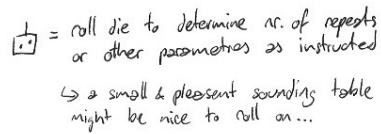 = roll die to determine nr. of repeats
or other parametres as instructed
↳ a small & pleasent sounding table
might be nice to roll on...